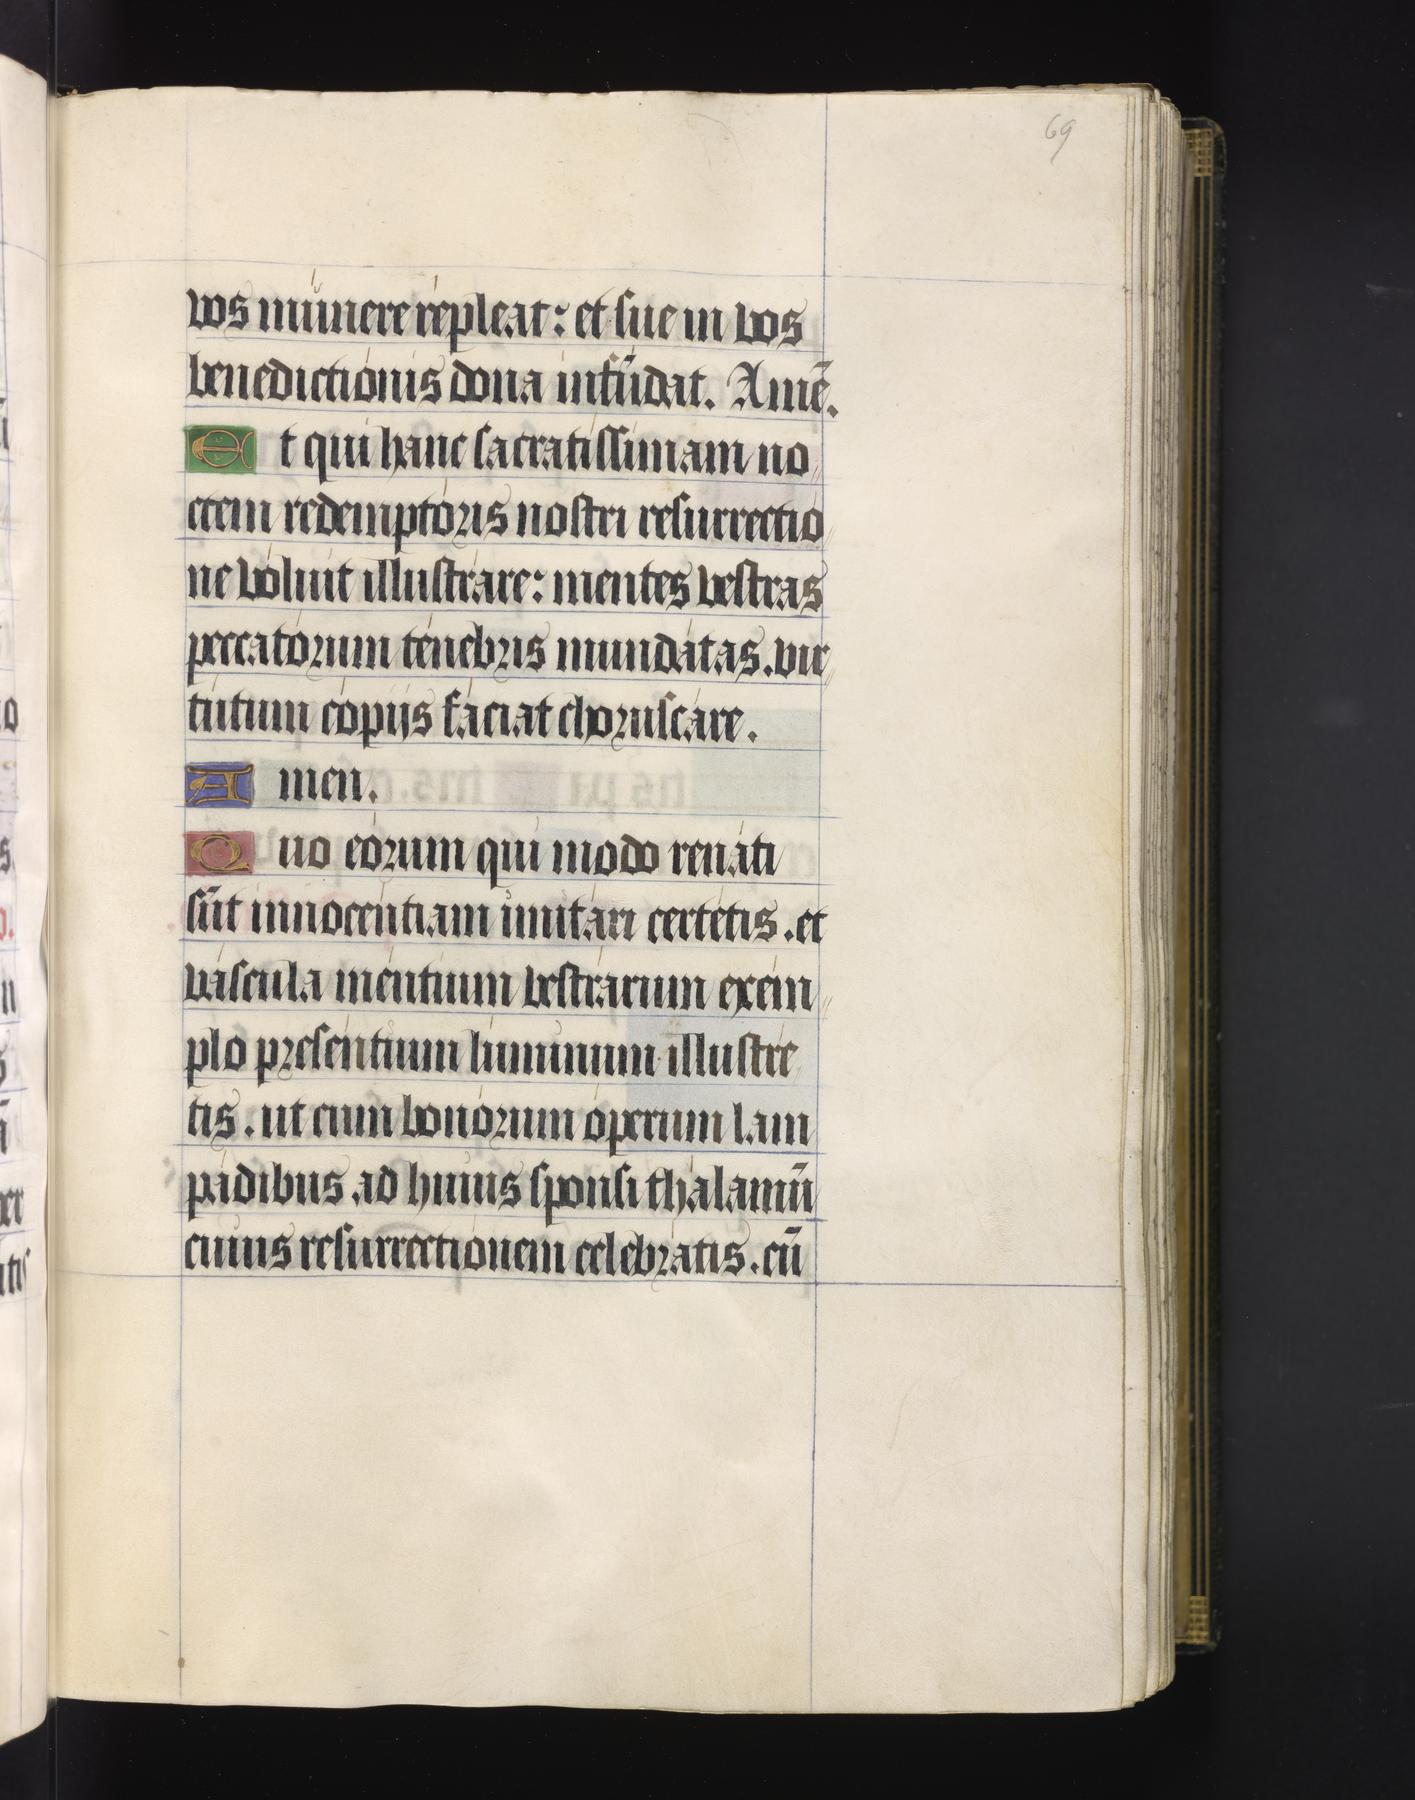 69
vos múnere répleat: et sue in vos
benedictiónis dona infūdat. Amē.
Et qui hanc sacratíssimam no
ctem redemptóris nostri resurrectió
ne vóluit illustráre: mentes vestras
peccatórum ténebris mundátas. vir
tútum cópijs fáciat choruscáre.
Amen.
Quo eórum qui modo renáti
sūt innocéntiam imitári certétis. et
váscula méntium vestrárum exém
plo preséntium lúminum illustré
tis. ut cum bonórum óperum lam
pádibus ad huius sponsi thálamū
cuius resurrectiónem celebrátis. cū